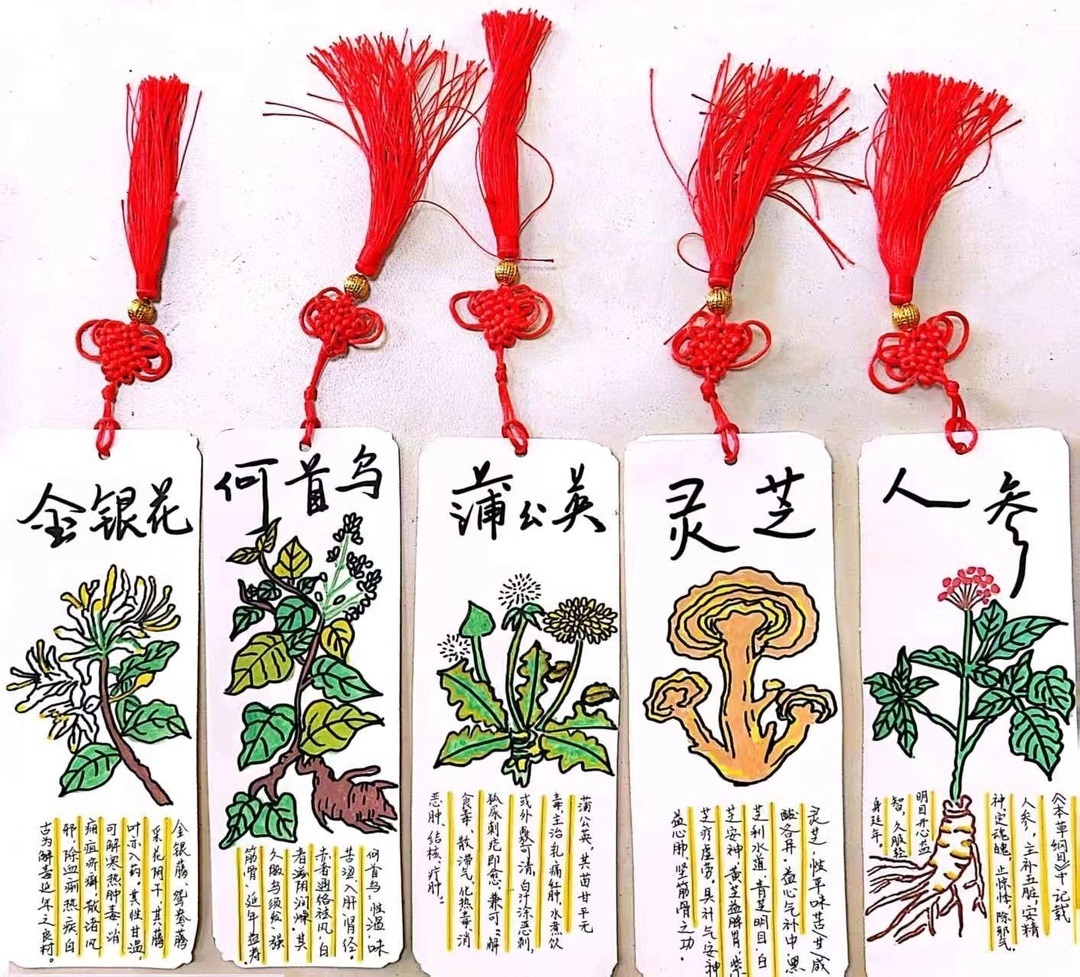 金银花
金银藤,鸳鸯藤
采花阴干,其藤
叶亦入药,其性甘温,
可解寒热肿毒,消
痈疽疥癣,散诸风
邪,除血痢热疾白
古为解毒延年之良材。
何首乌
何首乌:性温,味
苦涩入肝肾经.
赤者通络祛风,白
者滋阴润燥.其
久服乌须发,强
筋骨,延年益寿.
蒲公英
蒲公英,其苗甘平无
毒主治乳痈红肿,水煮饮
或外敷可清,白汁涂恶刺,
狐尿刺疮即愈,兼可:解
食毒、散滞气、化热毒、消
恶肿、结核、疔肿。
灵芝
灵芝,性平味苦,甘咸
酸各异,益心气补中,黑
芝利水道,青芝明目,白
芝安神,黄芝益脾胃,紫
芝疗虚劳,具补气安神
益心肺,坚筋骨之功.
人参
《本草纲目》中记载
人参,主补五脏,安精
神,定魂魄,止惊悸,除邪气,
明目开心益
智,久服轻
身延年。